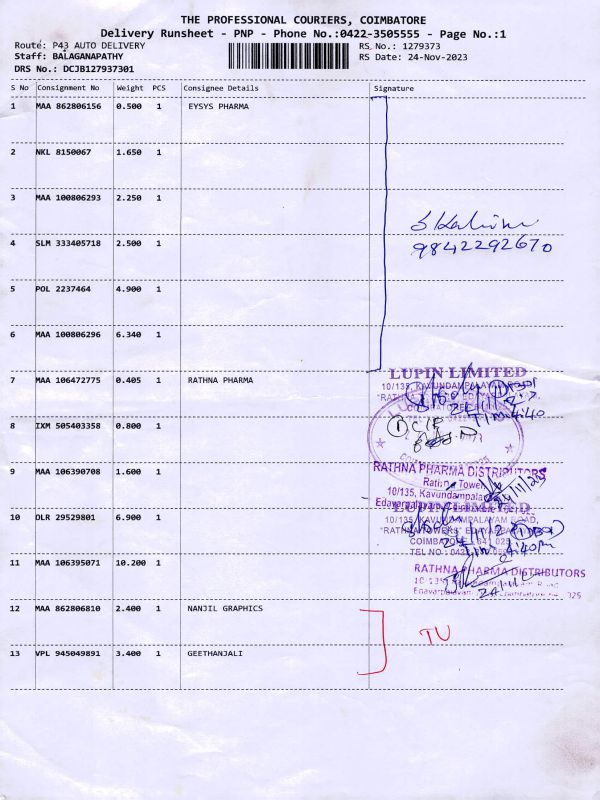 THE PROFESSIONAL COURIERS, COIMBATORE
Delivery Runsheet - PNP - Phone No.:0422-3505555 - Page No.:1
Route: P43 AUTO DELIVERY
RS No.: 1279373
Staff: BALAGANAPATHY
RS Date: 24-Nov-2023
DRS No.: DCJB127937301
S No Consignment No Weight PCS Consignee Details Signature
1 MAA 862806156 0.500 1 EYSYS PHARMA
2 NKL 8150067 1.650 1
3 MAA 100806293 2.250 1
9842292670
4 SLM 333405718 2.500 1
5 POL 2237464 4.900 1
6 MAA 100806296 6.340 1
LUPIN LIMITED
7 MAA 106472775 0.405 1 RATHNA PHARMA
10/135, KAVUNDAMPALAYAM ROAD
4:40
8 IXM 505403358 0.800 1
9 MAA 106390708 1.600 1
RATHNA PHARMA DISTRIBUTORS
Rathna Tower
10/135, Kavundampalayam
LUPIN LIMITED
10 DLR 29529801 6.900 1
10/135, KAVUNDAMPALAYAM ROAD,
"RATHNA TOWERS" EDAYARPALAYAM
COIMBATORE - 641 025
4:40Pm
11 MAA 106395071 10.200 1
RATHNA PHARMA DISTRIBUTORS
12 MAA 862806810 2.400 1 NANJIL GRAPHICS
TU
13 VPL 945049891 3.400 1 GEETHANJALI